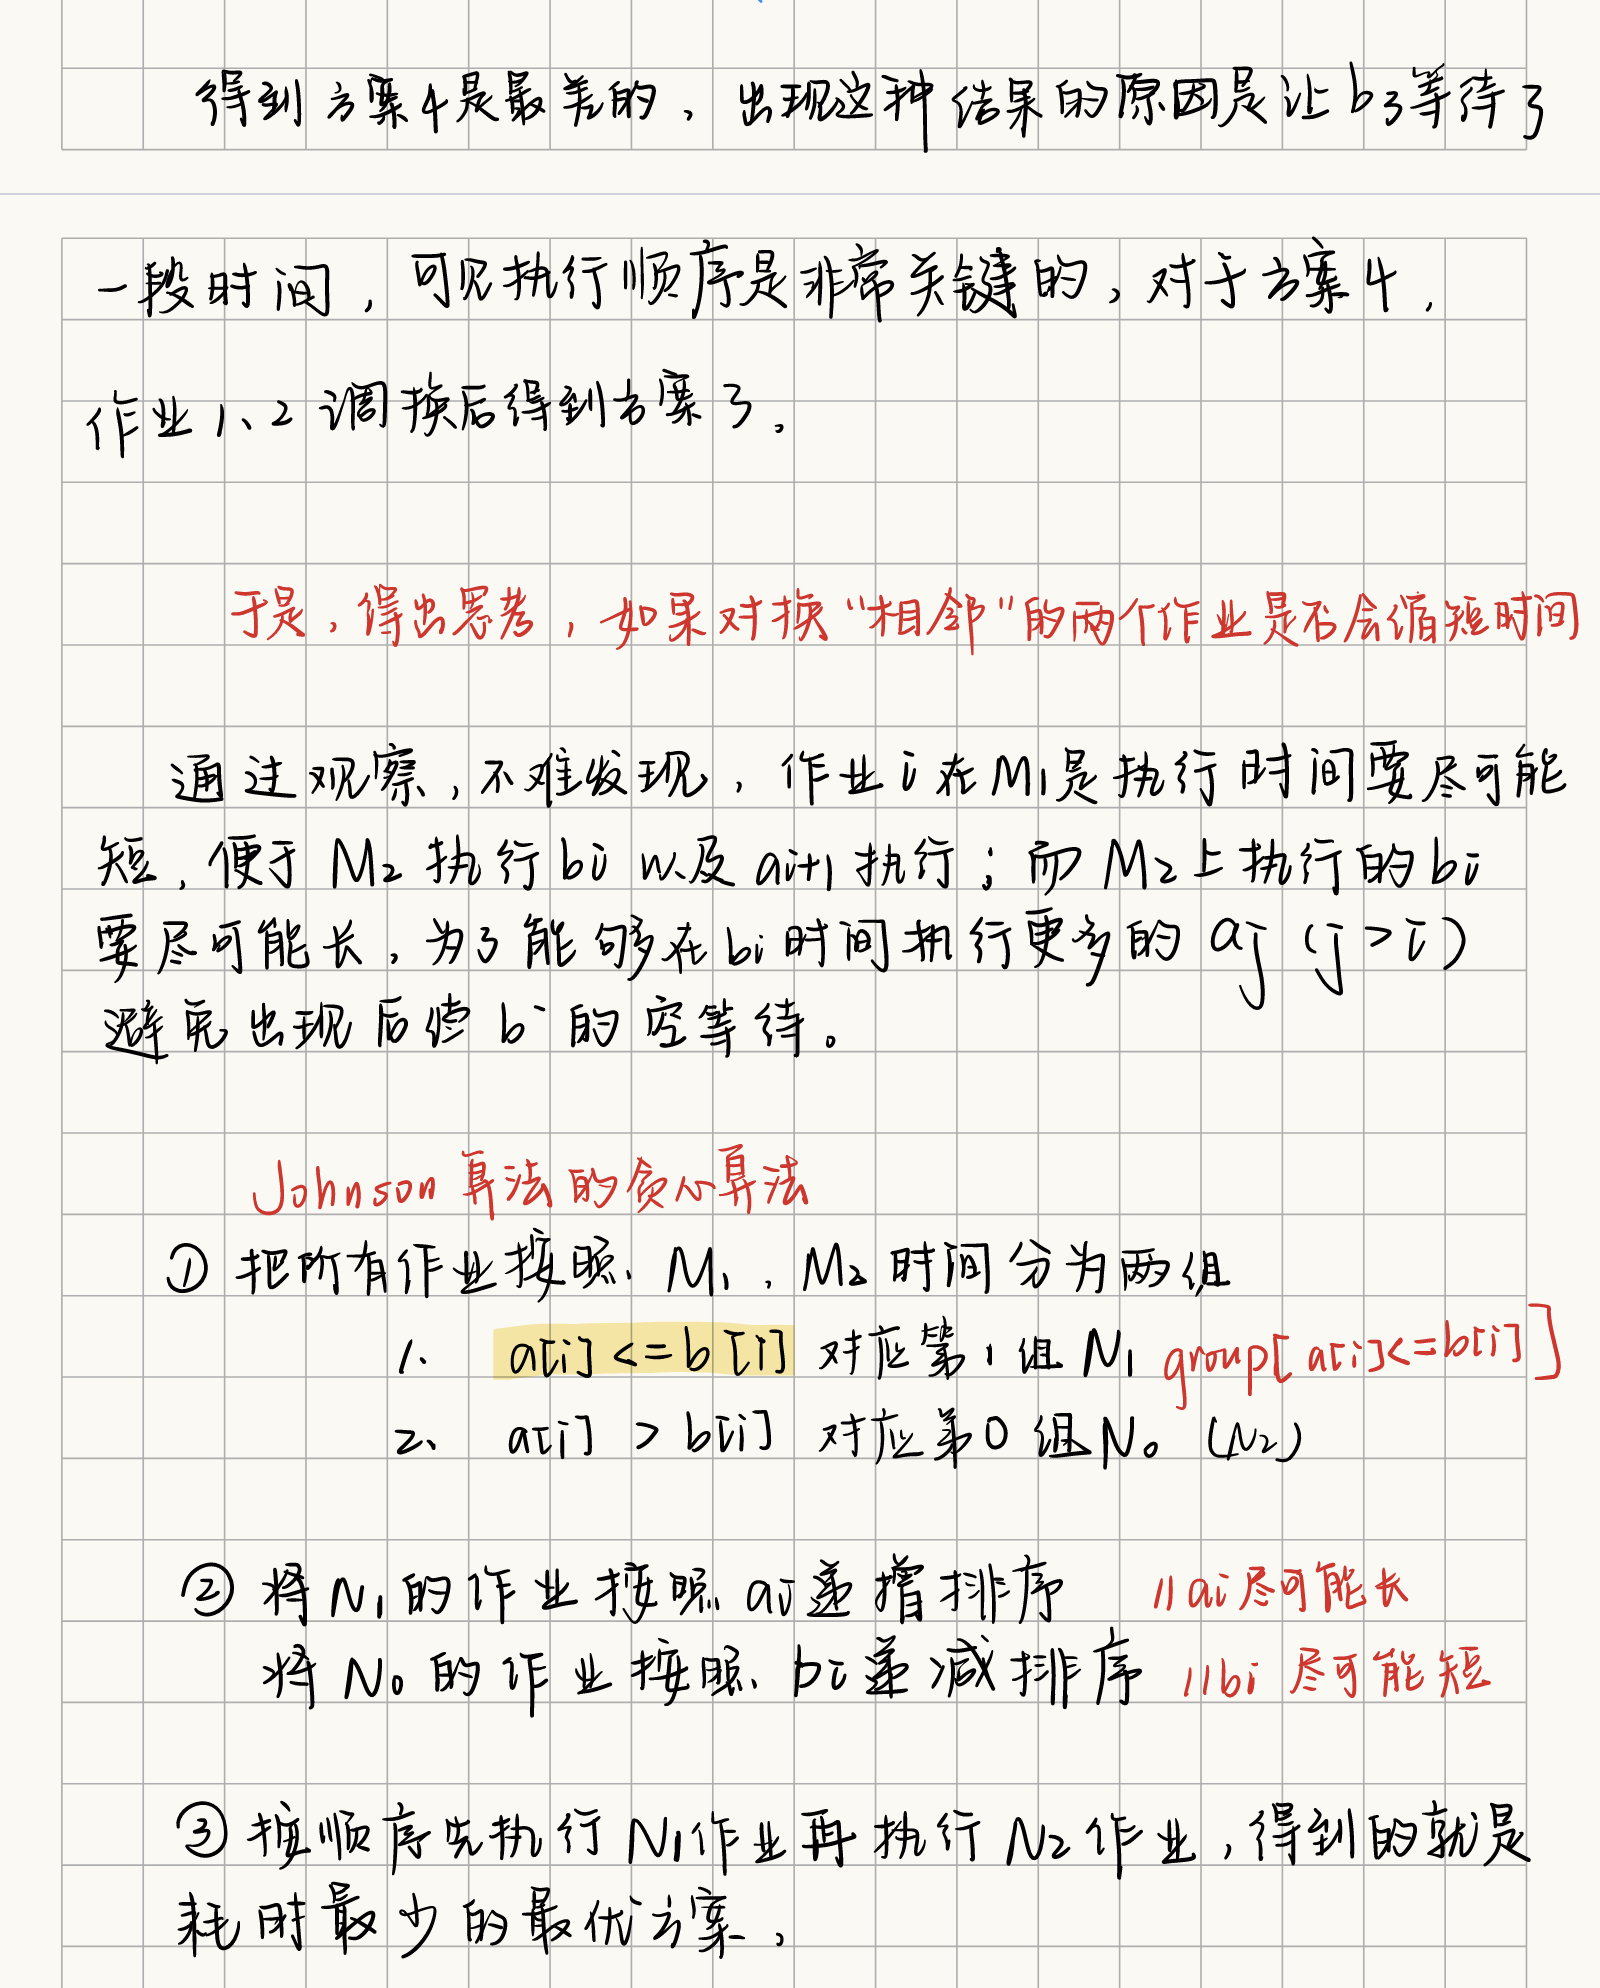 得到方案4是最差的，出现这种结果的原因是让b3等待了
一段时间，可见执行顺序是非常关键的，对于方案4，
作业1、2调换后得到方案3。
于是，得出思考，如果对换“相邻”的两个作业是否会缩短时间
通过观察，不难发现，作业i在M1是执行时间要尽可能
短，便于M2执行bi以及ai+1执行；而M2上执行的bi
要尽可能长，为了能够在bi时间执行更多的aj（j>i）
避免出现后续b的空等待。
Johnson算法的贪心算法
① 把所有作业按照M1，M2时间分为两组
1、 a[i]<=b[i] 对应第1组N1 group[a[i]<=b[i]]
2、 a[i] > b[i] 对应第0组N0 (N2)
② 将N1的作业按照ai递增排序 //ai尽可能长
将N0的作业按照bi递减排序 //bi尽可能短
③ 按顺序先执行N1作业再执行N2作业，得到的就是
耗时最少的最优方案，